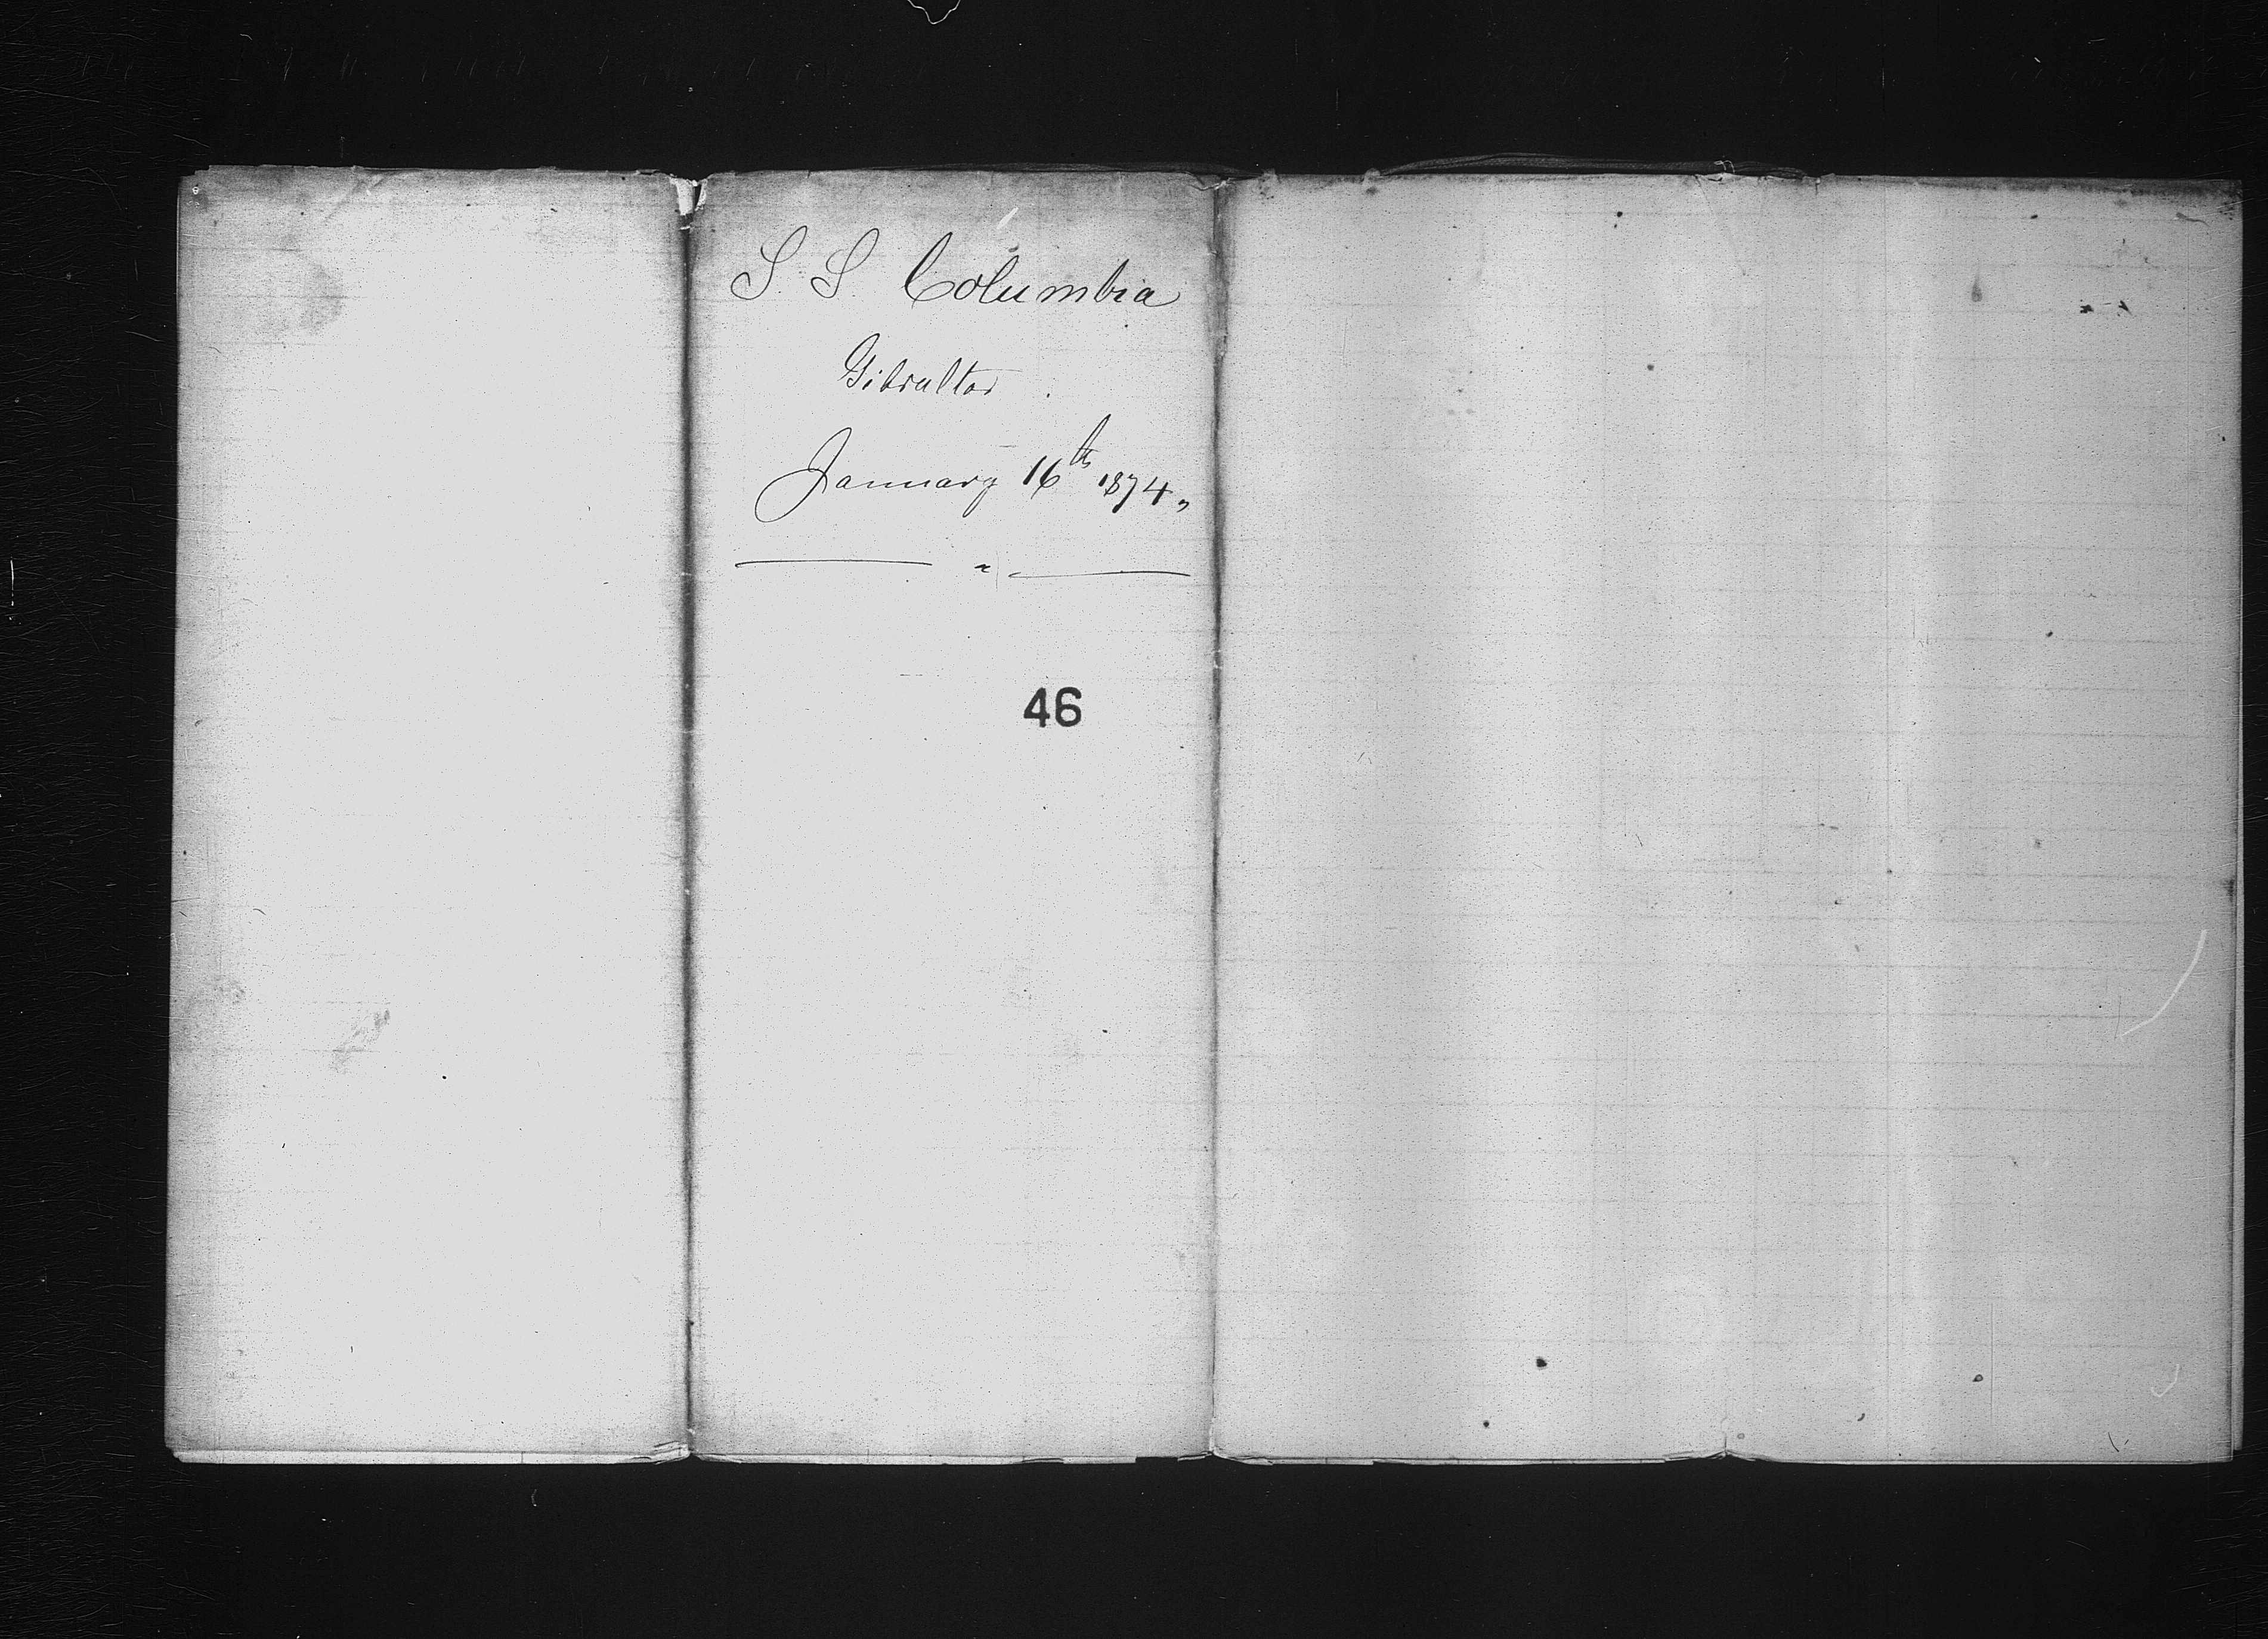 S. S. Columbia
Gibraltar.
January 16th 1874,,
46